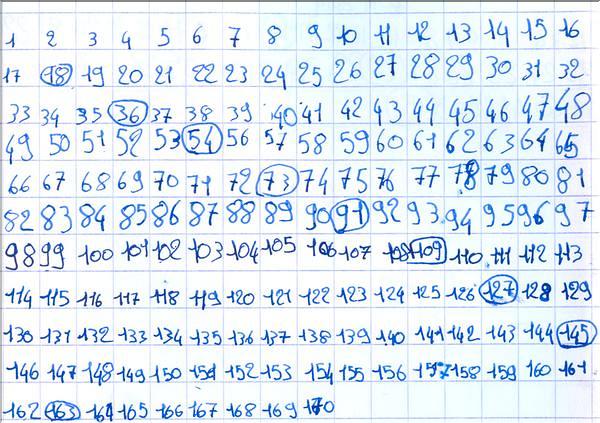 1 2 3 4 5 6 7 8 9 10 11 12 13 14 15 16
17 18 19 20 21 22 23 24 25 26 27 28 29 30 31 32
33 34 35 36 37 38 39 40 41 42 43 44 45 46 47 48
49 50 51 52 53 54 56 57 58 59 60 61 62 63 64 65
66 67 68 69 70 71 72 73 74 75 76 77 78 79 80 81
82 83 84 85 86 87 88 89 90 91 92 93 94 95 96 97
98 99 100 101 102 103 104 105 106 107 108 109 110 111 112 113
114 115 116 117 118 119 120 121 122 123 124 125 126 127 128 129
130 131 132 133 134 135 136 137 138 139 140 141 142 143 144 145
146 147 148 149 150 151 152 153 154 155 156 157 158 159 160 161
162 163 164 165 166 167 168 169 170